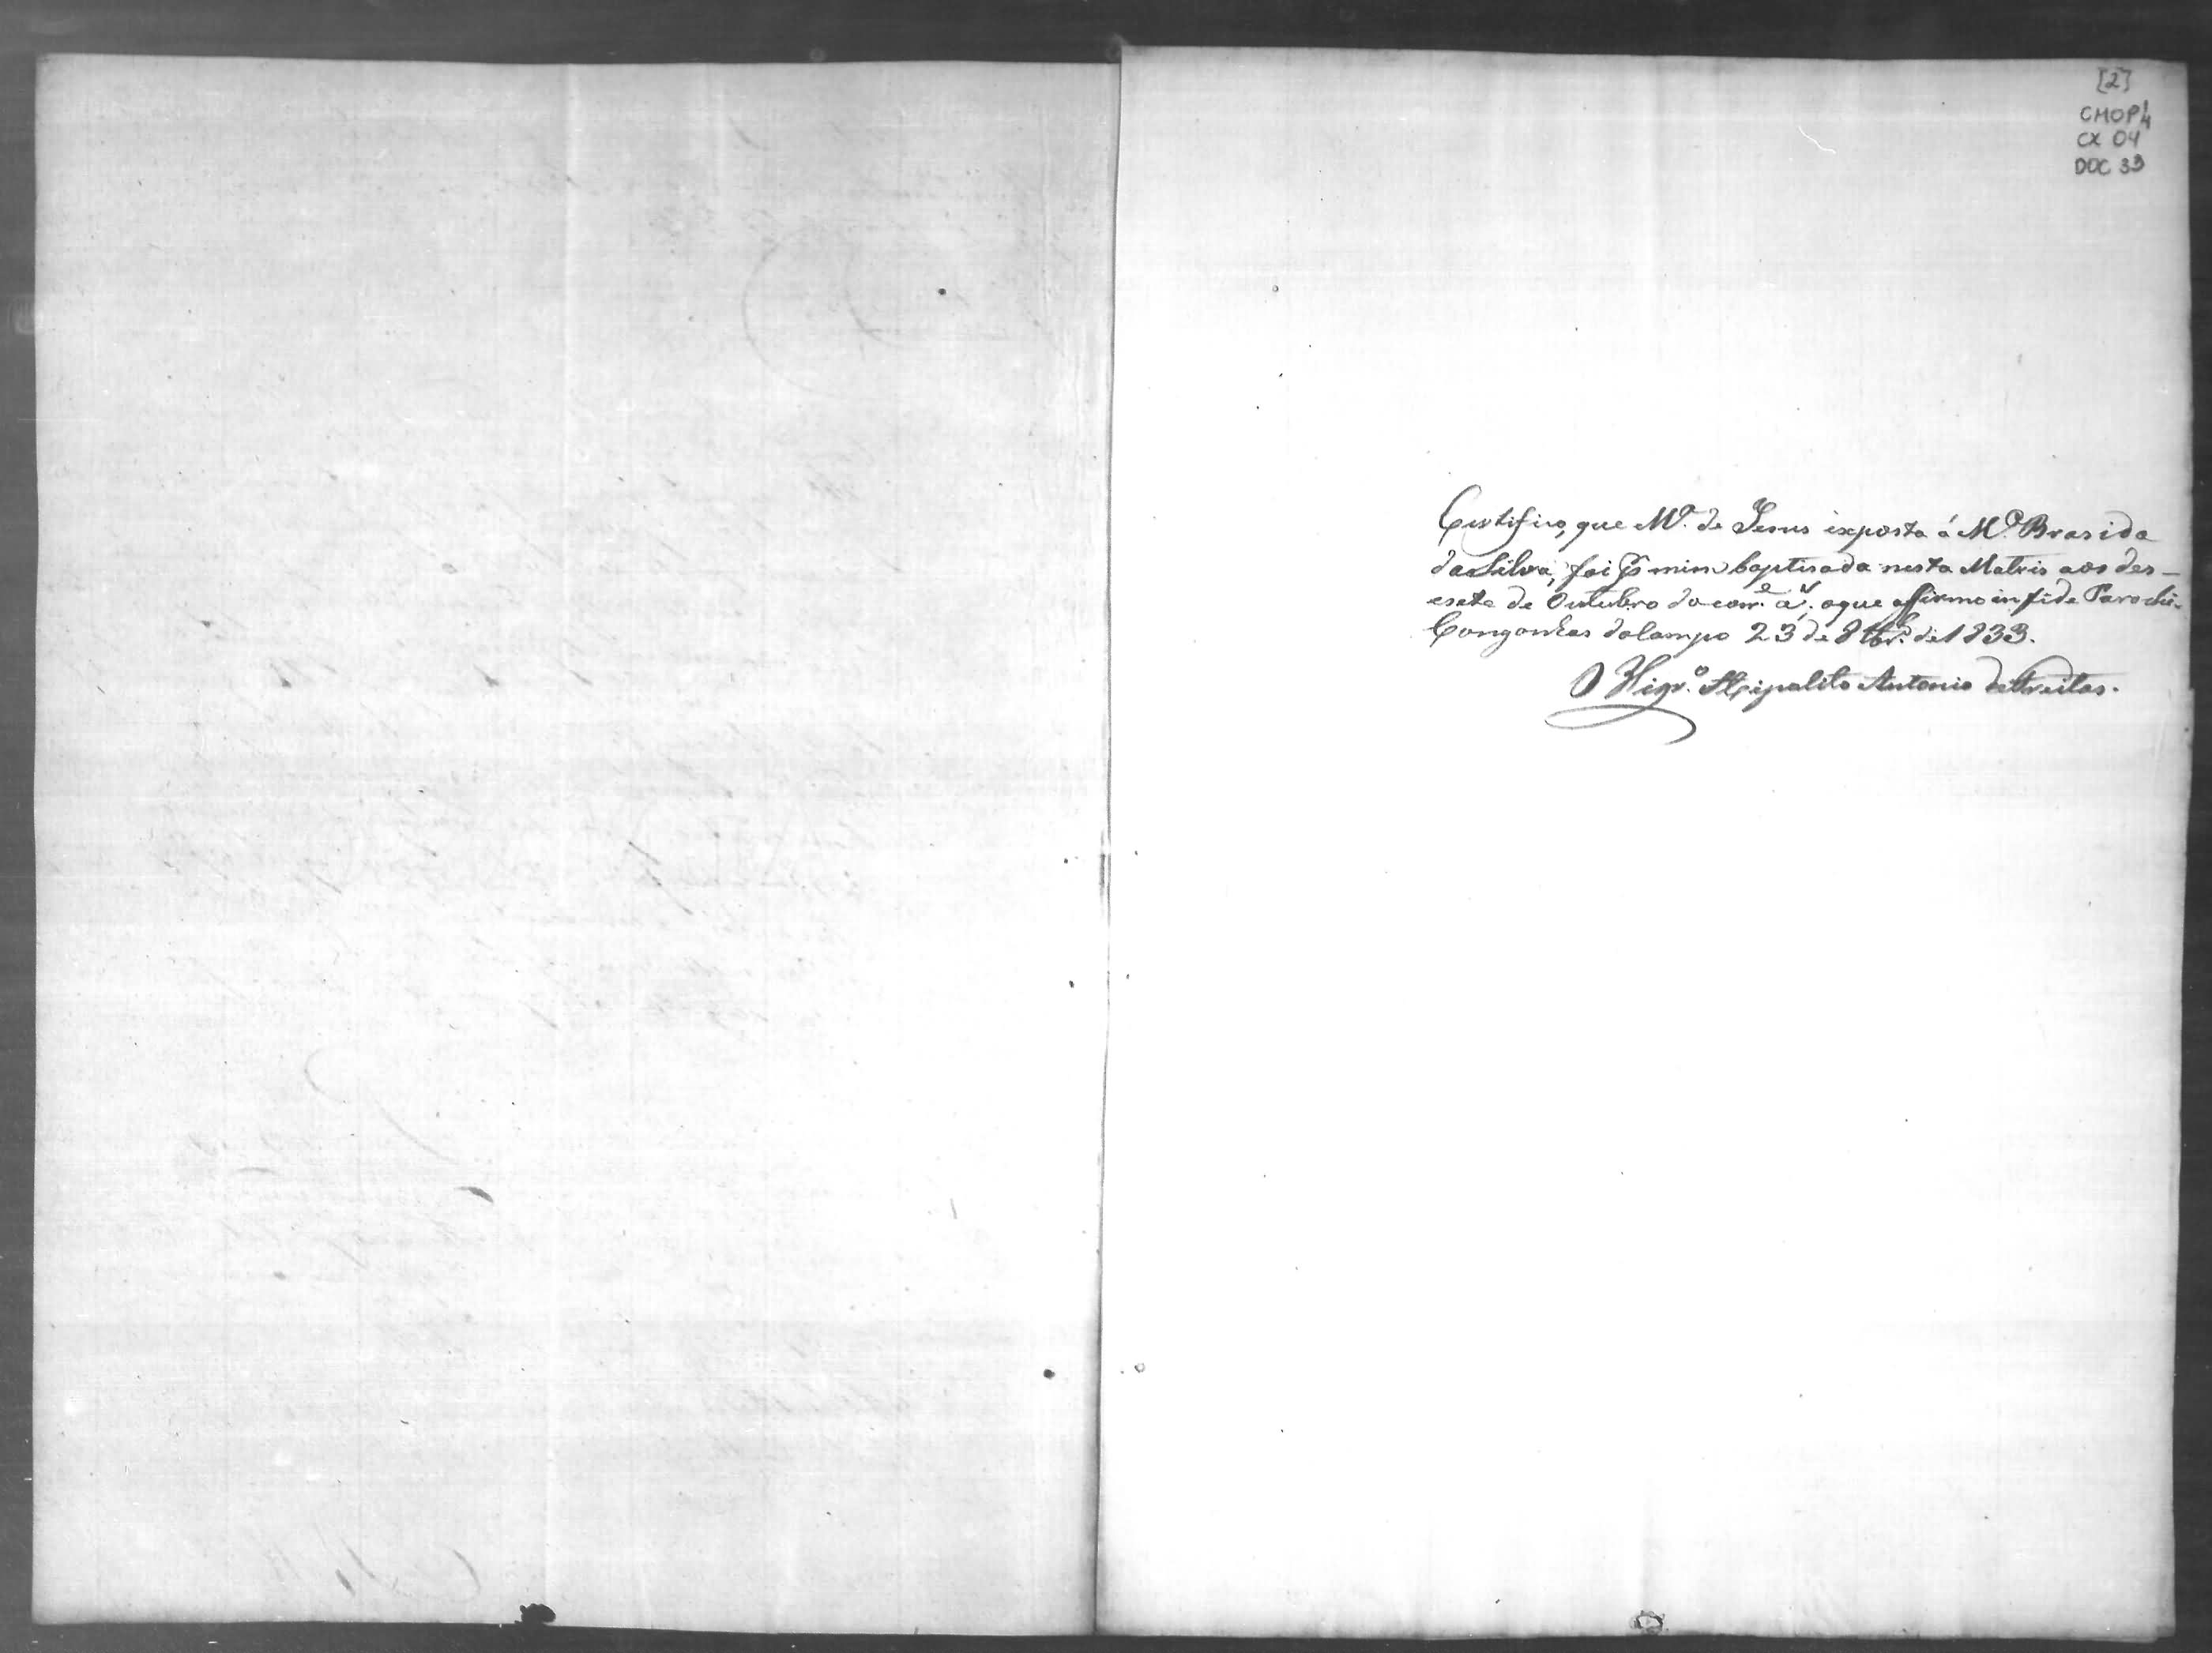 [2]
CMOP4
CX 04
DOC 33
Certifico, que Mª. de Jesus exposta á Mª. Brasida
da Silva, foi p mim baptisada nesta Matris aos des-
esete de Outubro do corre. aº. o que affirmo in fide Parochi.
Congonhas do Campo 23 de 8br.º de 1833.
O Vigr.º Hipolito Antonio de Freitas.